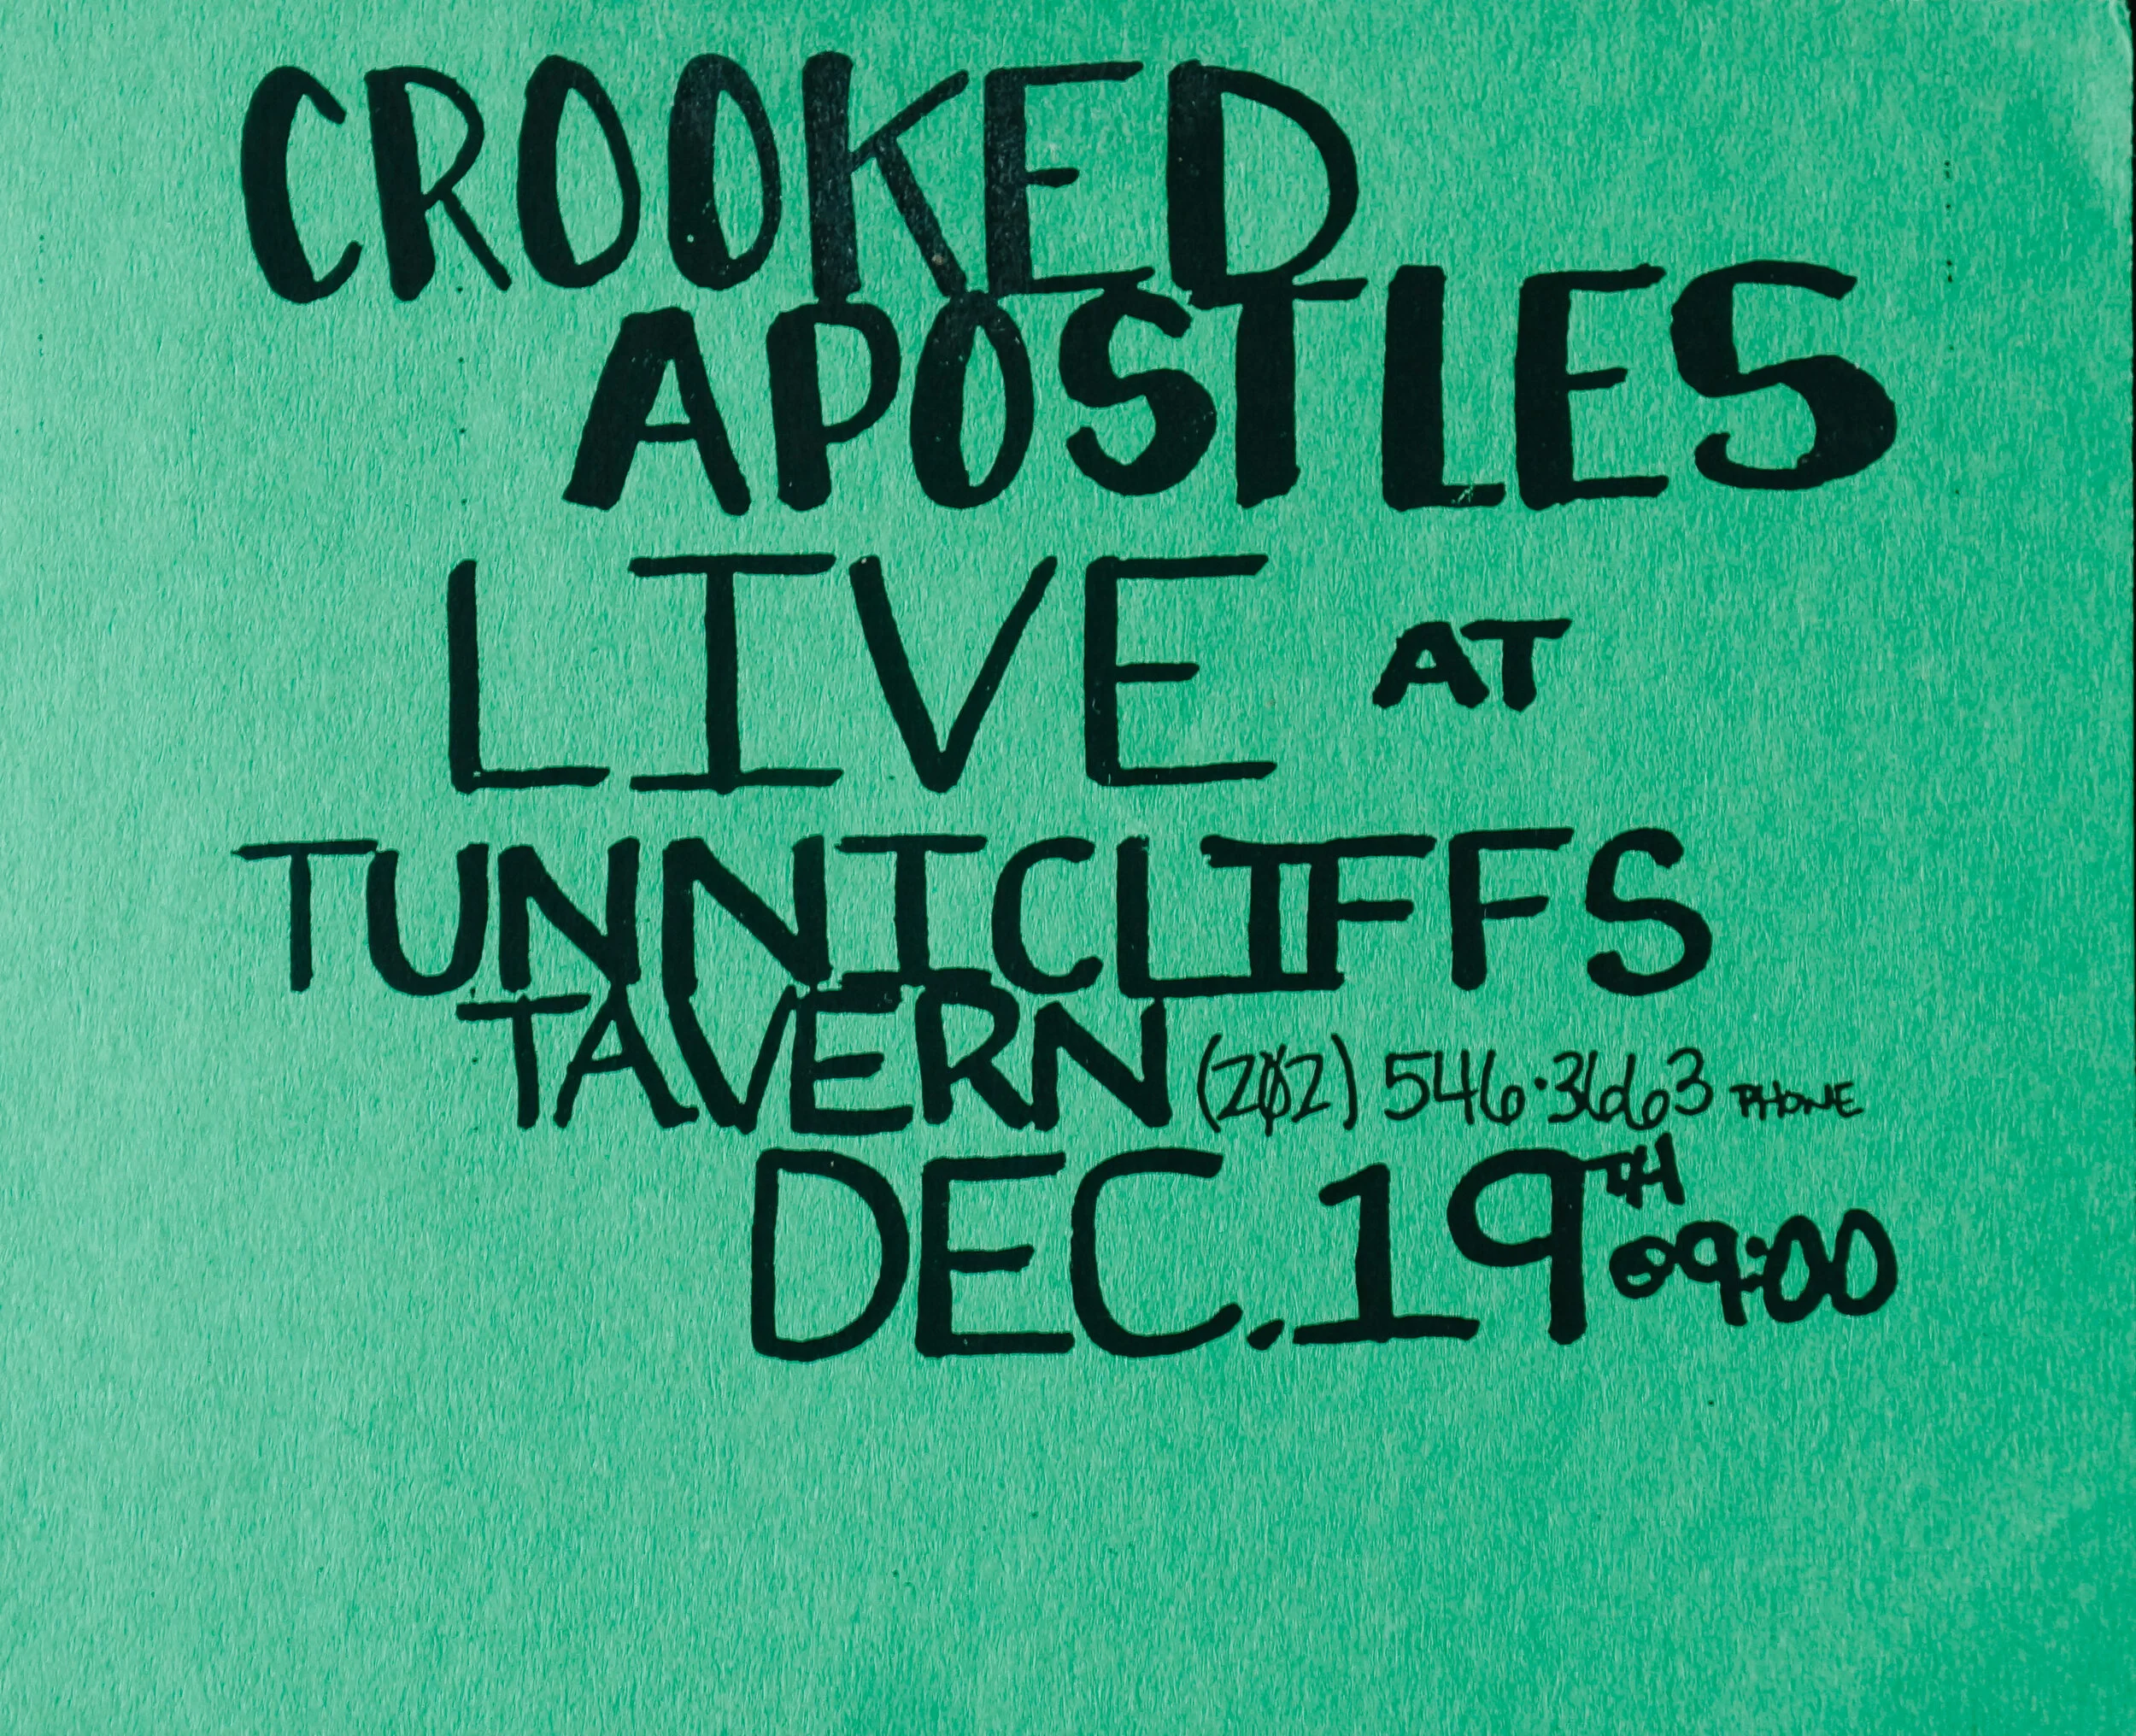 CROOKED
APOSTLES
LIVE AT
TUNNICLIFFS
TAVERN (202) 546·3663 PHONE
DEC. 19TH @ 9:00